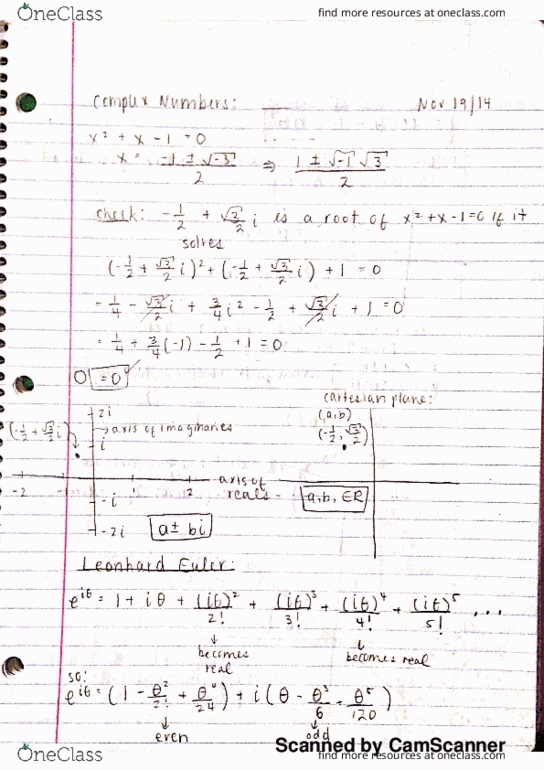 OneClass
find more resources at oneclass.com
Complex Numbers:
Nov 19/14
x² + x - 1 = 0
x = (-1 ± √-3)/2 ⇒ (1 ± √-1 √3)/2
check: -1/2 + √3/2 i is a root of x² + x - 1 = 0 if it
solves
(-1/2 + √3/2 i)² + (-1/2 + √3/2 i) + 1 = 0
= 1/4 - √3/2 i + 3/4 i² - 1/2 + √3/2 i + 1 = 0
= 1/4 + 3/4 (-1) - 1/2 + 1 = 0
0 = 0
cartesian plane:
2i
(a,b)
(-1/2 + √3/2 i)
→ axis of imaginaries
(-1/2, √3/2)
i
-2 -1 1 2
axis of
reals
-i
a,b, ∈R
-2i
a ± bi
Leonhard Euler:
e^iθ = 1 + iθ + (iθ)²/2! + (iθ)³/3! + (iθ)⁴/4! + (iθ)⁵/5! ...
becomes
real
becomes real
so:
e^iθ = (1 - θ²/2! + θ⁴/24) + i(θ - θ³/6 + θ⁵/120)
even
odd
Scanned by CamScanner
OneClass
find more resources at oneclass.com